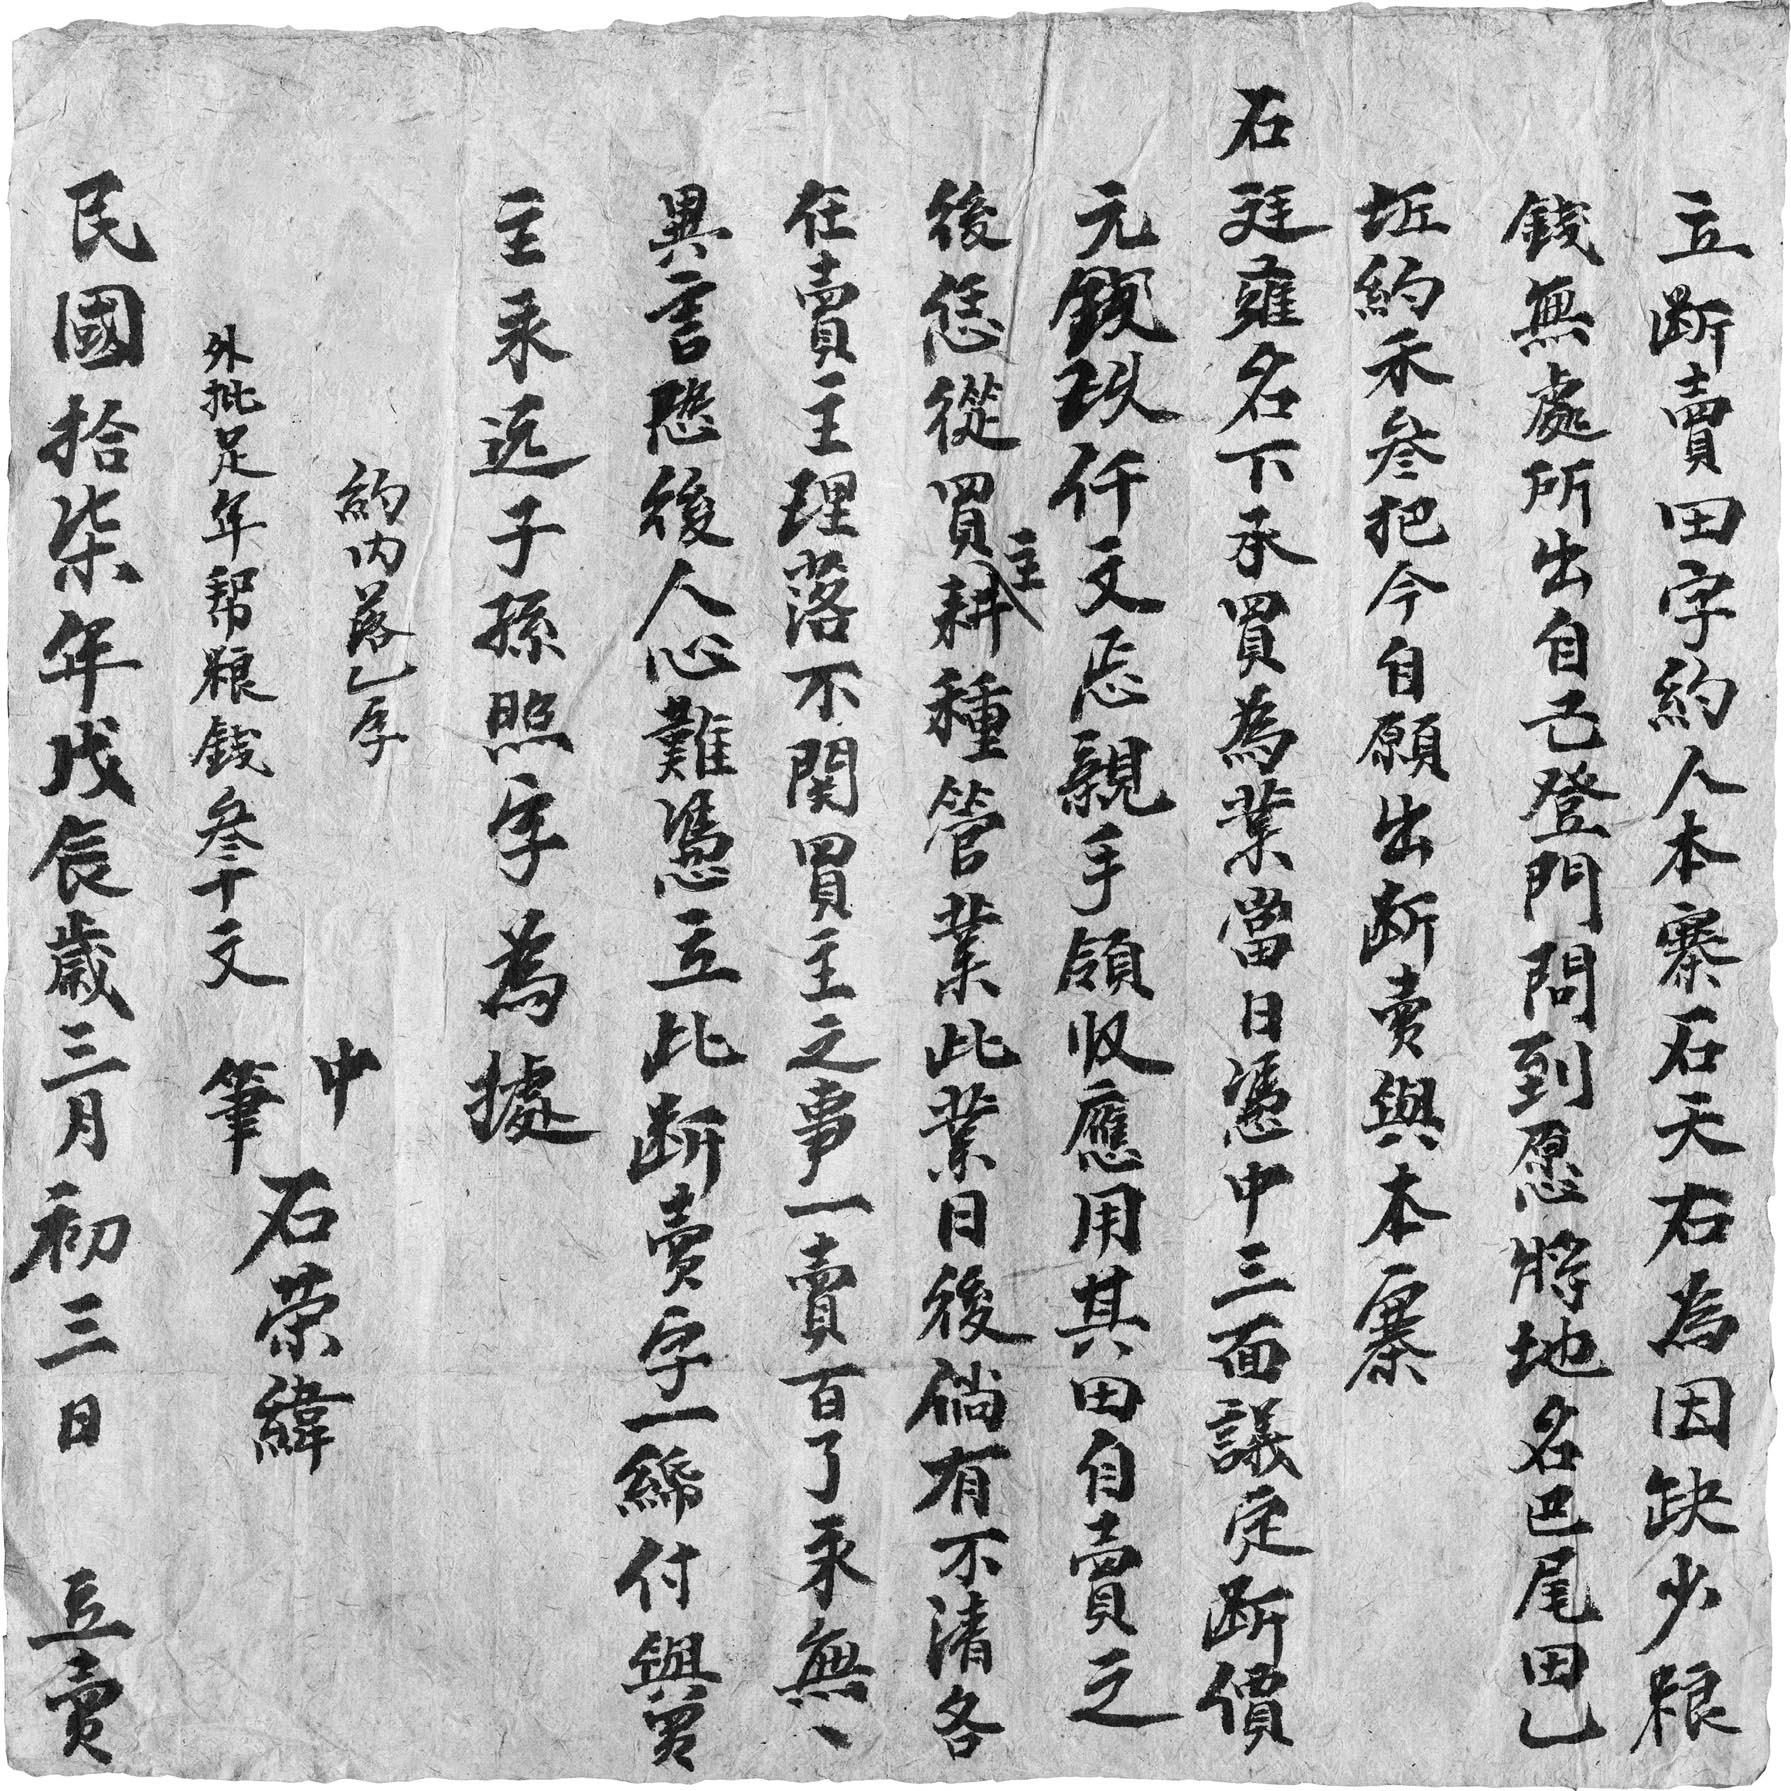 立断賣田字約人本寨石天右為因缺少粮
錢無處所出自己登門問到愿將地名巴尾田乙
坵約禾叁把今自願出断賣與本寨
石廷雍名下承買為業當日憑中三面議定断價
元錢玖仟文忝親手領收應用其田自賣之
後恁從買主耕種管業此業日後倘有不清各
在賣主理落不関買主之事一賣百了永無丶
異言恐後人心難憑立此断賣字一綈付與買
主永远子孫照字為據
約内落乙字
外批足年帮粮錢叁十文
中
筆
石荣緯
民國拾柒年戊辰歲三月初三日 立賣